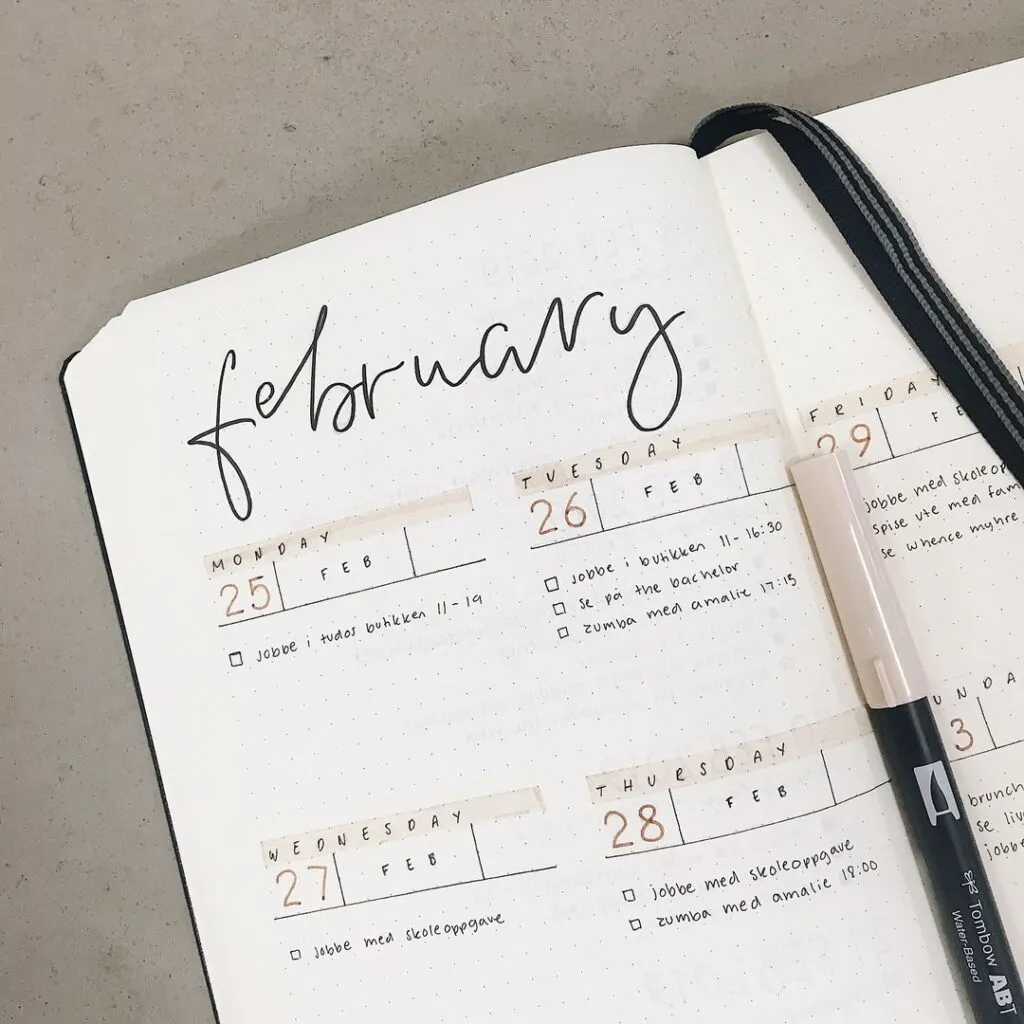 february
MONDAY
25 FEB
jobbe i tudos butikken 11-19
TUESDAY
26 FEB
jobbe i butikken 11-16:30
se på the bachelor
zumba med amalie 17:15
WEDNESDAY
27 FEB
jobbe med skoleoppgave
THURSDAY
28 FEB
jobbe med skoleoppgave
zumba med amalie 18:00
FRIDAY
29 FE
jobbe med skoleop
spise ute med fam
se whence myhre
UNDA
3
brunch
se liv
jobbe
Tombow ABT
Water-Based